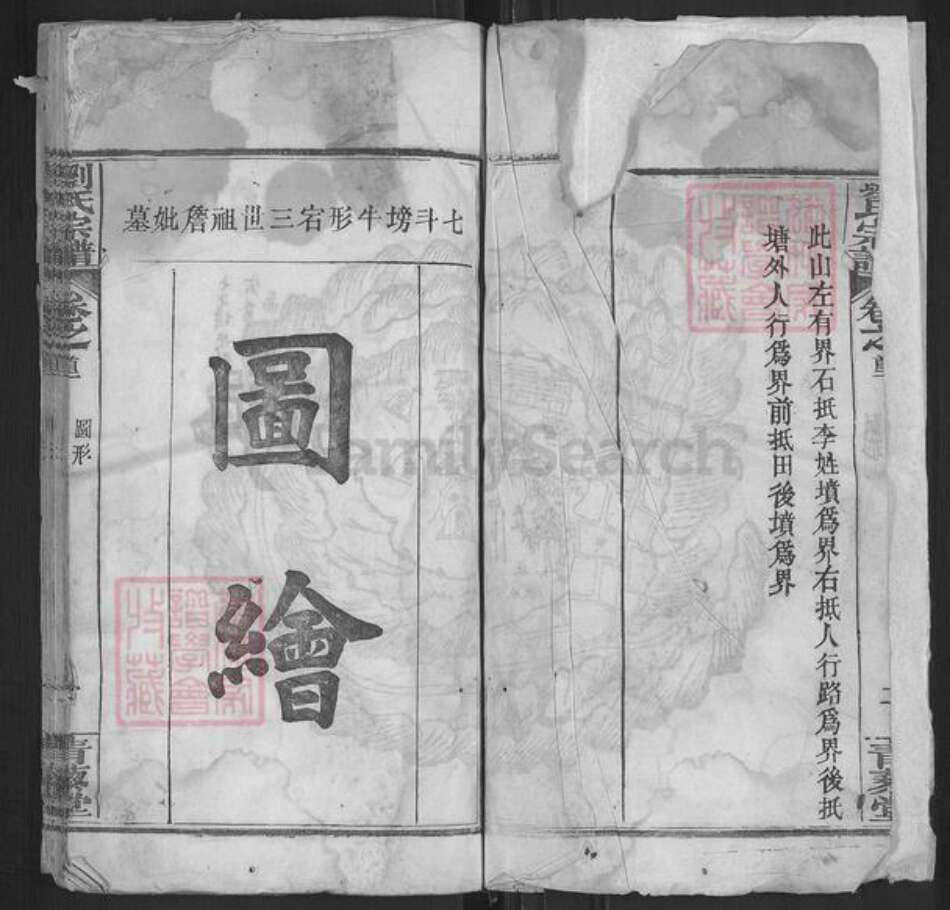 此山左有界石抵李姓墳爲界右抵人行路爲界後抵
塘外人行爲界前抵田後墳爲界
七斗塝牛形宕三世祖詹妣墓
圖繪
劉氏宗譜
卷之一
圖形
青藜堂
FamilySearch